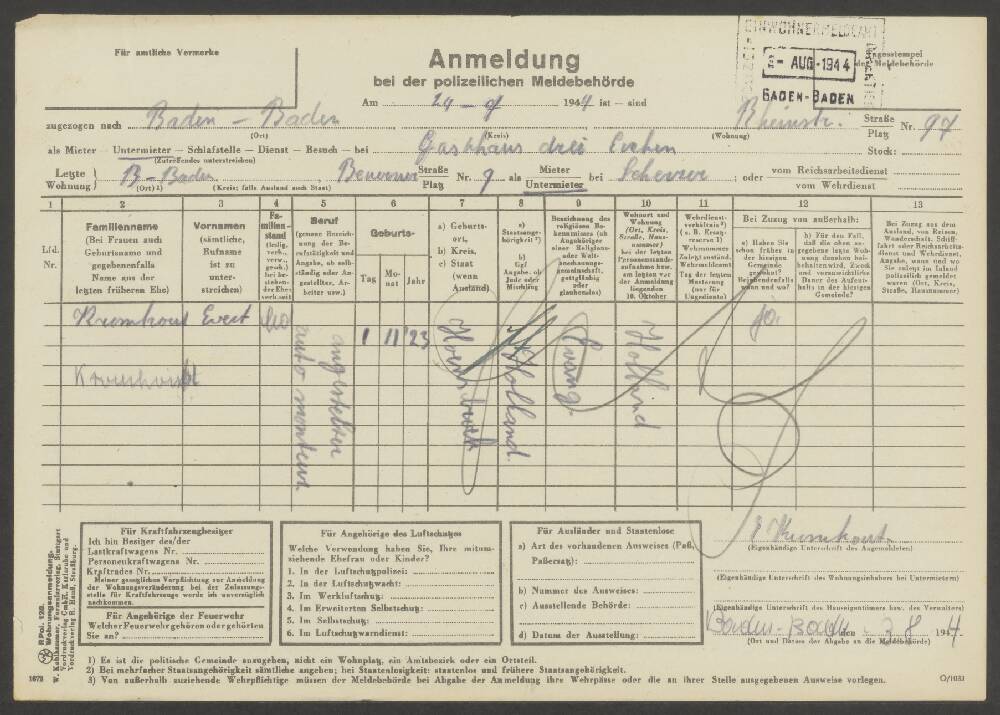 Für amtliche Vermerke
Anmeldung
bei der polizeilichen Meldebehörde
EINWOHNERMELDEAMT
AUG 1944
BADEN-BADEN
Tagesstempel
der Meldebehörde
Am 24 - 7 1944 ist — sind
zugezogen nach Baden - Baden Rheinstr. Straße Platz Nr. 97
(Ort) (Kreis) (Wohnung)
als Mieter — Untermieter — Schlafstelle — Dienst — Besuch — bei Gasthaus drei Eichen Stock:
(Zutreffendes unterstreichen)
Letzte Wohnung B-Baden, Straße Platz Nr. 9 als Mieter Untermieter bei ; oder vom Reichsarbeitsdienst vom Wehrdienst
(Ort) 1) (Kreis; falls Ausland auch Staat)
1 2 3 4 5 6 7 8 9 10 11 12 13
Lfd. Nr.
Familienname
(Bei Frauen auch
Geburtsname und
gegebenenfalls
Name aus der
letzten früheren Ehe)
Vornamen
(sämtliche,
Rufname
ist zu
unter-
streichen)
Fa-
milien-
stand
(ledig,
verh.,
verw.,
gesch.)
bei be-
stehen-
der Ehe
verh. seit
Beruf
(genaue Bezeich-
nung der Be-
rufstätigkeit und
Angabe, ob selb-
ständig oder An-
gestellter, Ar-
beiter usw.)
Geburts-
Tag Mo-nat Jahr
a) Geburts-
ort,
b) Kreis,
c) Staat
(wenn
Ausland)
a)
Staatsange-
hörigkeit 2)
b)
Ggf.
Angabe, ob
Jude oder
Mischling
Bezeichnung des
religiösen Be-
kenntnisses (ob
Angehöriger
einer Religions-
oder Welt-
anschauungs-
gemeinschaft,
gottgläubig
oder
glaubenslos)
Wohnort und
Wohnung
(Ort, Kreis,
Straße, Haus-
nummer)
bei der letzten
Personenstands-
aufnahme bzw.
am letzten vor
der Anmeldung
liegenden
10. Oktober
Wehrdienst-
verhältnis 3)
(z. B. Ersatz-
reserve I)
Wehrnummer
Zuletzt zuständ.
Wehrmeldeamt
Tag der letzten
Musterung
(nur für
Ungediente)
Bei Zuzug von außerhalb:
a) Haben Sie
schon früher in
der hiesigen
Gemeinde
gewohnt?
Bejahendenfalls
wann und wo?
b) Für den Fall,
daß die oben an-
gegebene letzte Woh-
nung daneben bei-
behalten wird, Zweck
und voraussichtliche
Dauer des Aufent-
halts in der hiesigen
Gemeinde?
Bei Zuzug aus dem
Ausland, von Reisen,
Wanderschaft, Schiff-
fahrt oder Reichsarbeits-
dienst und Wehrdienst,
Angabe, wann und wo
Sie zuletzt im Inland
polizeilich gemeldet
waren (Ort, Kreis,
Straße, Hausnummer)
Kromhout Evert 1 11 23 Holland. Evang. Holland ja
angestellter
auto monteur.
Kromhout
Für Kraftfahrzeugbesitzer
Ich bin Besitzer des/der
Lastkraftwagens Nr.
Personenkraftwagens Nr.
Kraftrades Nr.
Meiner gesetzlichen Verpflichtung zur Anmeldung
der Wohnungsveränderung bei der Zulassungs-
stelle für Kraftfahrzeuge werde ich unverzüglich
nachkommen.
Für Angehörige der Feuerwehr
Welcher Feuerwehr gehören oder gehörten
Sie an?
Für Angehörige des Luftschutzes
Welche Verwendung haben Sie, Ihre mitum-
ziehende Ehefrau oder Kinder?
1. In der Luftschutzpolizei:
2. In der Luftschutzwacht:
3. Im Werkluftschutz:
4. Im Erweiterten Selbstschutz:
5. Im Selbstschutz:
6. Im Luftschutzwarndienst:
Für Ausländer und Staatenlose
a) Art des vorhandenen Ausweises (Paß,
Paßersatz):
b) Nummer des Ausweises:
c) Ausstellende Behörde:
d) Datum der Ausstellung:
E Kromhout
(Eigenhändige Unterschrift des Angemeldeten)
(Eigenhändige Unterschrift des Wohnungsinhabers bei Untermietern)
(Eigenhändige Unterschrift des Hauseigentümers bzw. des Verwalters)
Baden-Baden, den 3 8 1944.
(Ort und Datum der Abgabe an die Meldebehörde)
RPol. 120.
Wohnungsanmeldung.
1) Es ist die politische Gemeinde anzugeben, nicht ein Wohnplatz, ein Amtsbezirk oder ein Ortsteil.
2) Bei mehrfacher Staatsangehörigkeit sämtliche angeben; bei Staatenlosigkeit: staatenlos und frühere Staatsangehörigkeit.
3) Von außerhalb zuziehende Wehrpflichtige müssen der Meldebehörde bei Abgabe der Anmeldung ihre Wehrpässe oder die an ihrer Stelle ausgegebenen Ausweise vorlegen.
1672
O/1031